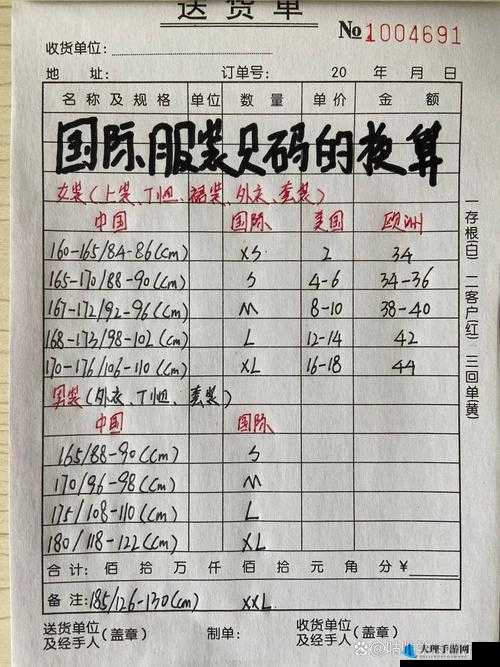 送货单
№1004691
收货单位:
地 址: 订单号: 20 年 月 日
名称及规格 单位 数量 单价 金额
国际服装尺码的换算
女装(上装、T恤、裙装、外衣、套装)
中国 国际 美国 欧洲
160-165/84-86(cm) XS 2 34
165-170/88-90(cm) S 4-6 34-36
167-172/92-96(cm) M 8-10 38-40
168-173/98-102(cm) L 12-14 42
170-176/106-110(cm) XL 16-18 44
男装(外衣、T恤、套装)
中国 国际
165/88-90(cm) S
170/96-98(cm) M
175/108-110(cm) L
180/118-122(cm) XL
合计: 佰 拾 万 仟 佰 拾 元 角 分 ¥
备注: 185/126-130(cm) XXL
送货单位及经手人(盖章) 制单: 收货单位及经手人
一存根(白) 二客户(红) 三回单(黄)
大理手游网